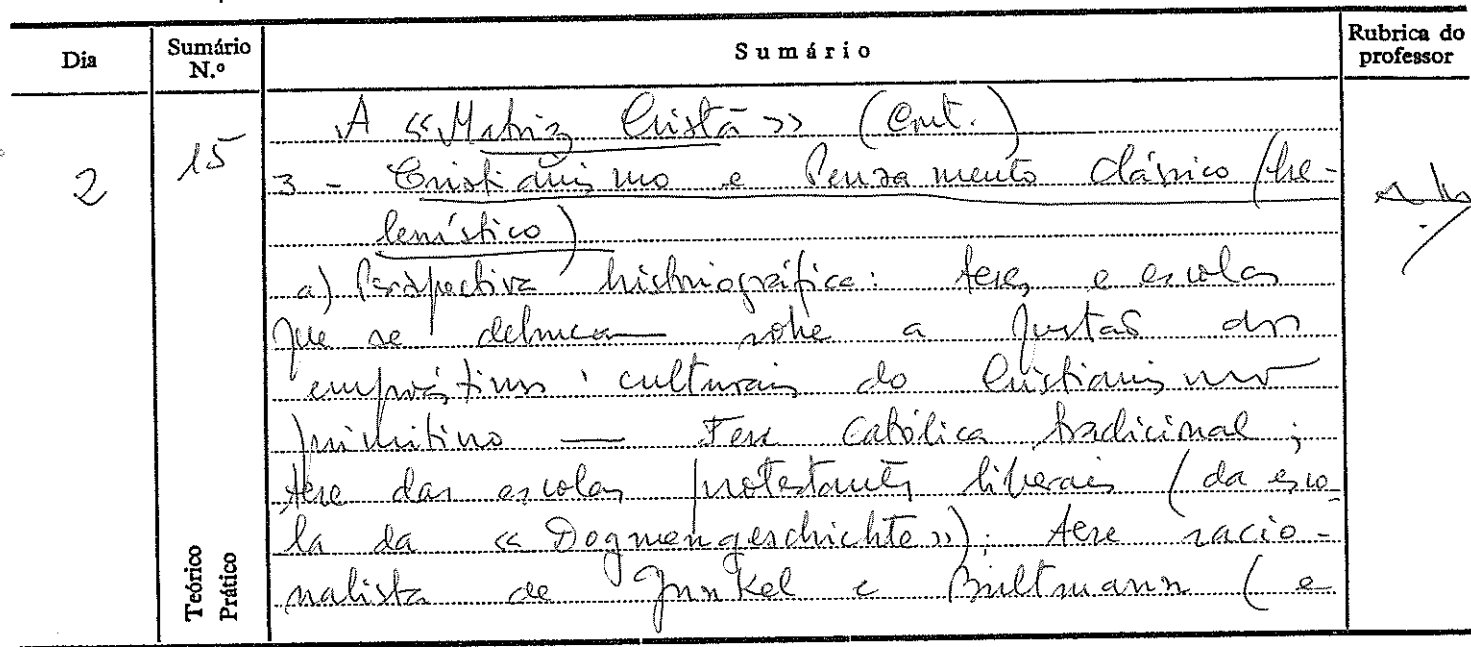 Dia
Sumário N.º
Sumário
Rubrica do professor
2
15
A «Matriz Cristã» (Cont.)
3 - Cristianismo e Pensamento Clássico (he-
lenístico)
a) Perspectiva historiográfica: teses e escolas
que se delineam sobre a questão dos
empréstimos culturais do Cristianismo
primitivo — Tese Católica tradicional;
tese das escolas protestantes liberais (da esco-
la da «Dogmengeschichte»); tese racio-
nalista de Gunkel e Bultmann (e
Teórico
Prático